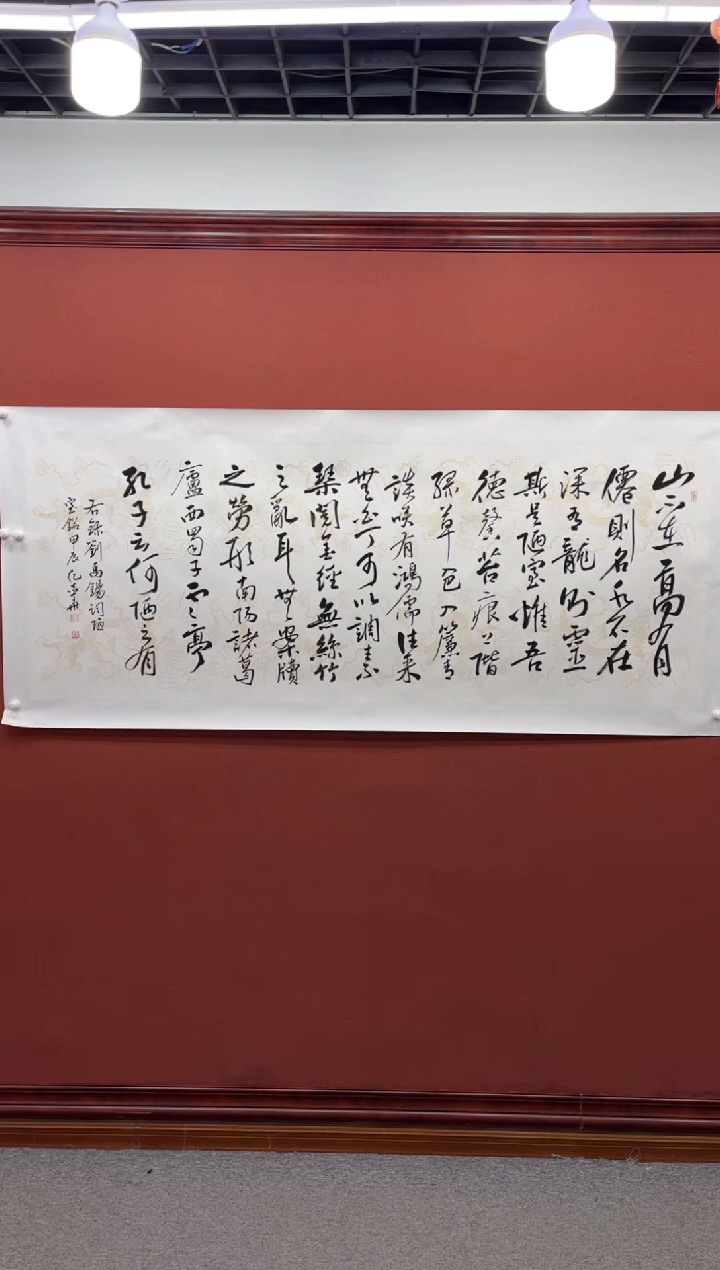 山不在高有
僊則名水不在
深有龍則靈
斯是陋室惟吾
德馨苔痕上階
綠草色入簾青
談咲有鴻儒往来
無白丁可以調素
琴閱金經無絲竹
之亂耳無案牘
之勞形南陽諸葛
廬西蜀子雲亭
孔子云何陋之有
右錄劉禹錫詞陋
室銘甲辰